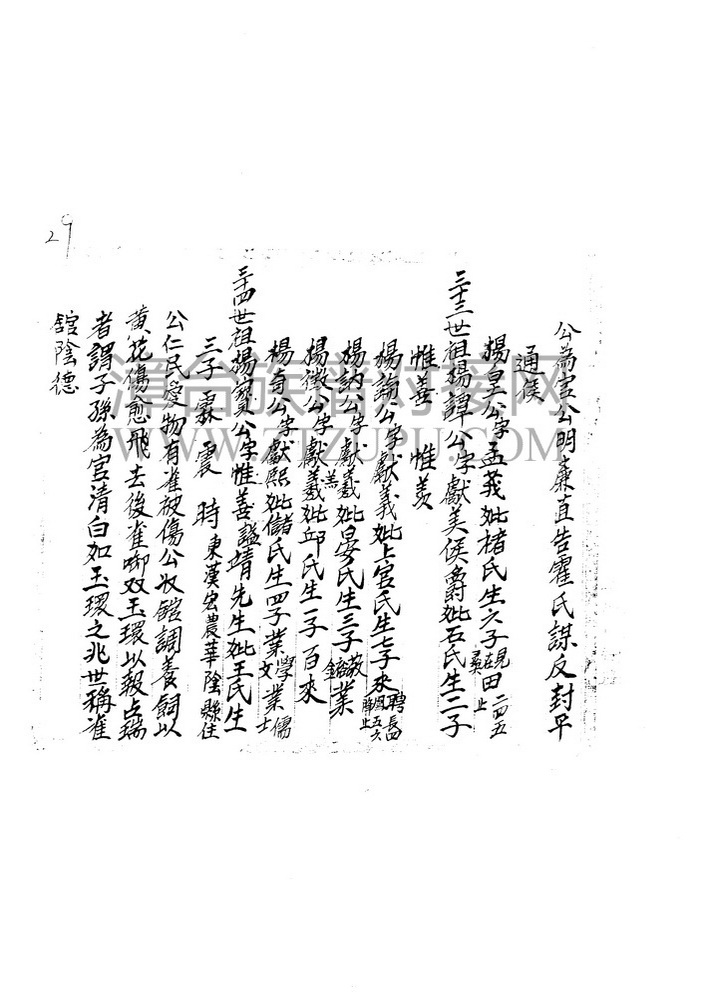 29
公為官公明廉直告霍氏謀反封平
通侯
楊䍐公字孟義妣楮氏生六子 見在 田 二四五止
三十三世祖楊譚公字獻美侯爵妣石氏生二子
惟善 惟羨
楊論公字獻義妣上官氏生七子來聘長四
楊納公字獻羲妣晏氏生三子 敬 業
楊徵公字獻羲妣邱氏生一子百來
楊奇公字獻熙妣儲氏生四子業學業儒文士
三十四世祖楊寶公字惟善謚靖先生妣王氏生
三子霖震時東漢宏農華陰縣住
公仁民愛物有雀被傷公收舘調養飼以
黃花傷愈飛去後雀啣双玉環以報占瑞
者謂子孫為官清白如玉環之兆世稱雀
舘陰德
漳台族譜對接網
WWW.ZTZUPU.COM